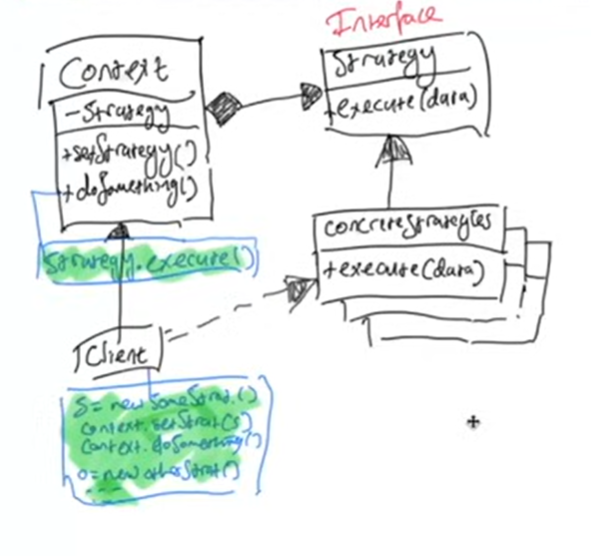 Interface
Context
-Strategy
+setStrategy()
+doSomething()
Strategy
+execute(data)
Strategy.execute()
concreteStrategies
+execute(data)
Client
S = new SomeStrat.()
Context.setStrat(s)
Context.doSomething()
O = new otherStrat()